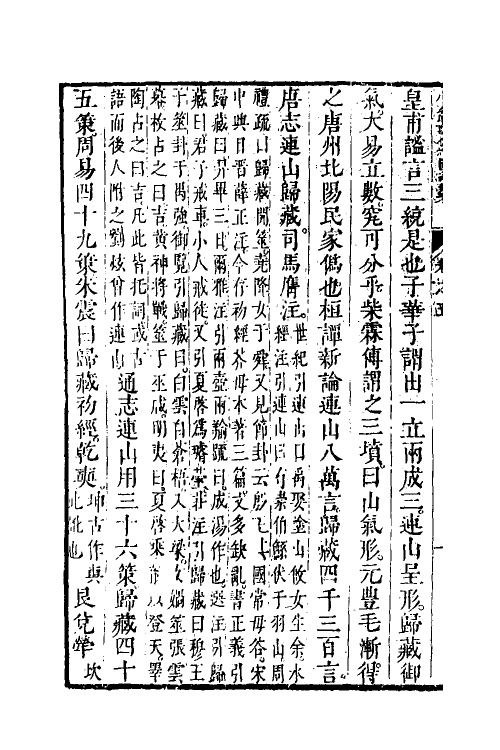 皇甫謐言三統是也子華子謂出一立兩成三連山呈形歸藏御
氣大易立數究可分乎柴霖傳謂之三墳曰山氣形元豐毛漸得
之唐州北陽民家僞也桓譚新論連山八萬言歸藏四千三百言
唐志連山歸藏司馬膺注
世紀引連山曰禹娶塗山攸女生余水
經注引連山曰有崇伯鯀伏于羽山周
禮疏曰歸藏開筮堯降女于舜又見節卦云殷王其國常母谷宋
中興目晉薛正注今存初經齊母本蓍三篇文多缺亂書正義引
歸藏曰羿畢三日爾雅注引兩壺兩羭疏曰成湯作也選注引歸
藏曰君子戒車小人戒徒又引夏啓爲璿臺非注引歸藏曰穆王
于筮卦于禺強御覽引歸藏曰白雲自蒼梧入大梁女媧筮張雲
幕枚占之曰吉黃神將戰筮于巫咸明夷曰夏啓乘龍以登天睪
陶占之曰吉凡此皆托詞或古
語而後人附之劉炫曾作連山
通志連山用三十六策歸藏四十
五策周易四十九策朱震曰歸藏初經乾奭
坤古作與
此訛也
艮兌犖
坎